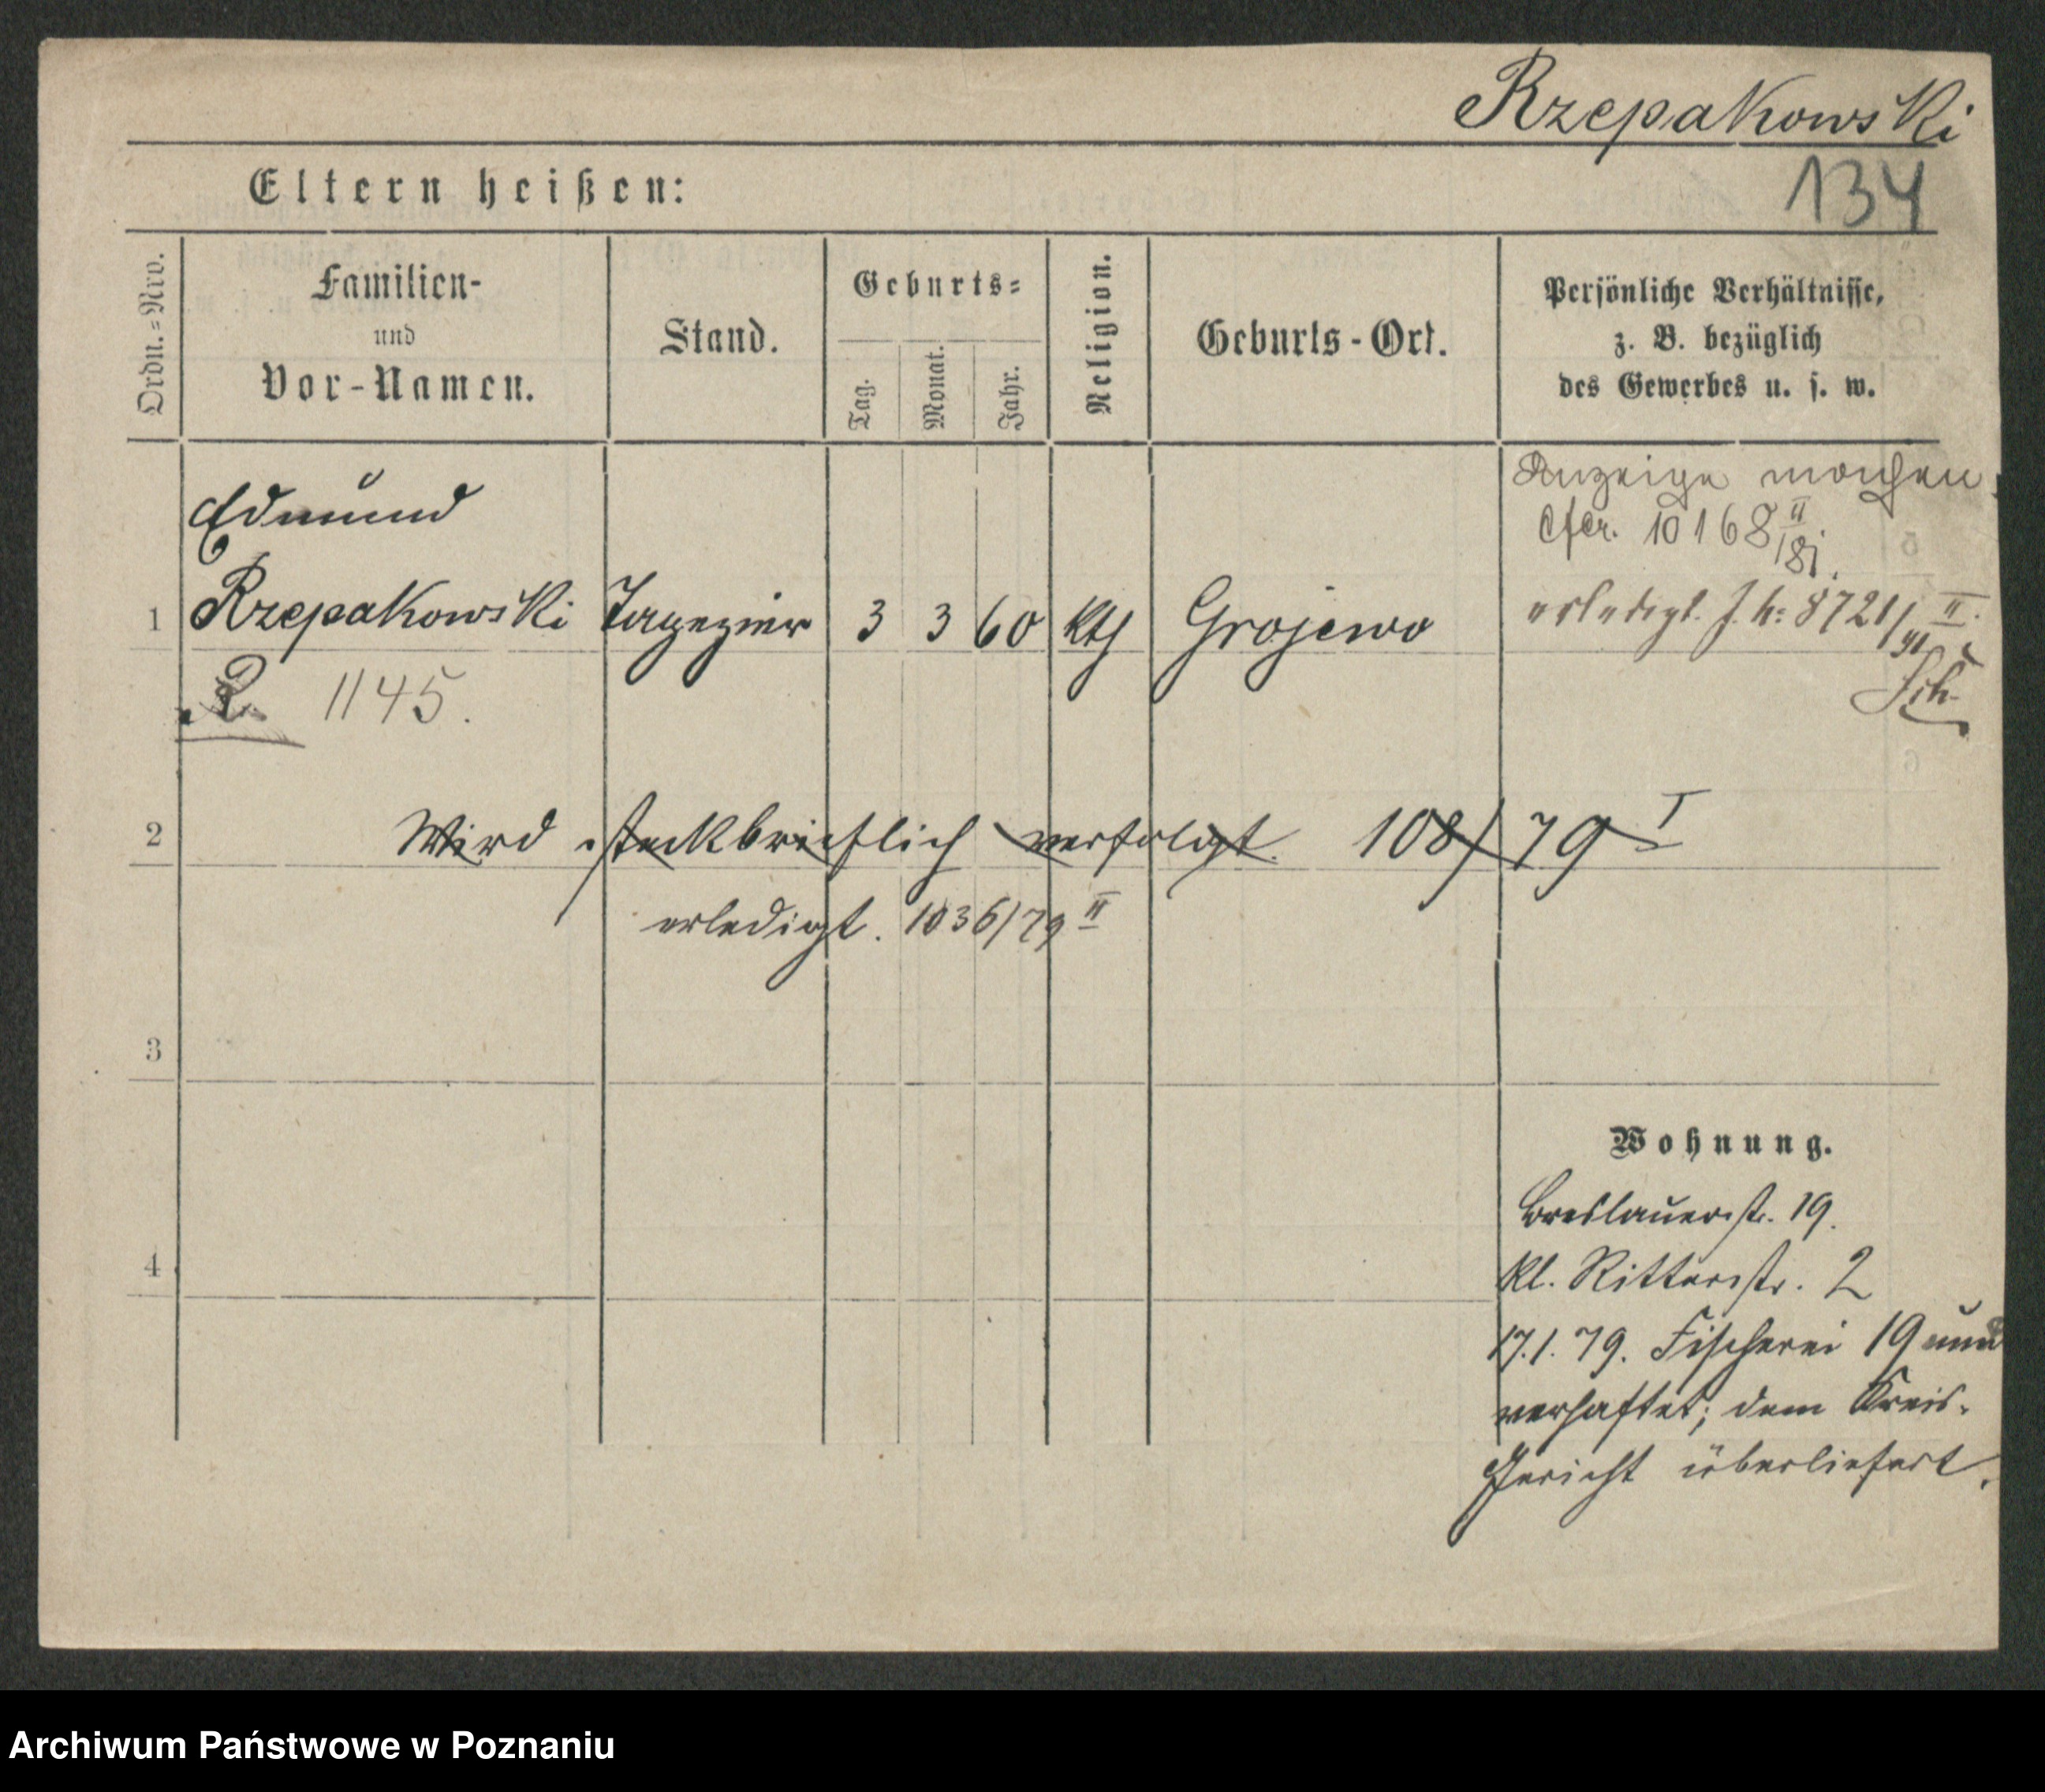 Rzepakowski
134
Eltern heißen:
Ordn.=Nro.
Familien-
und
Vor-Namen.
Stand.
Geburts=
Tag.
Monat.
Jahr.
Religion.
Geburts-Ort.
Persönliche Verhältnisse,
z. B. bezüglich
des Gewerbes u. s. w.
Anzeige machen.
Cfer. 10168 II/81.
1 Edmund
Rzepakowski Tapezier 3 3 60 kth Grojewo
erledigt. J. N: 8721/91 II.
Sch.
R. 1145.
2 Wird steckbrieflich verfolgt. 108/79 I
erledigt. 1036/79 II
3
4
Wohnung.
Breslauerstr. 19.
kl. Ritterstr. 2
17.1.79. Fischerei 19 und
verhaftet; dem Kreis-
Gericht überliefert.
Archiwum Państwowe w Poznaniu